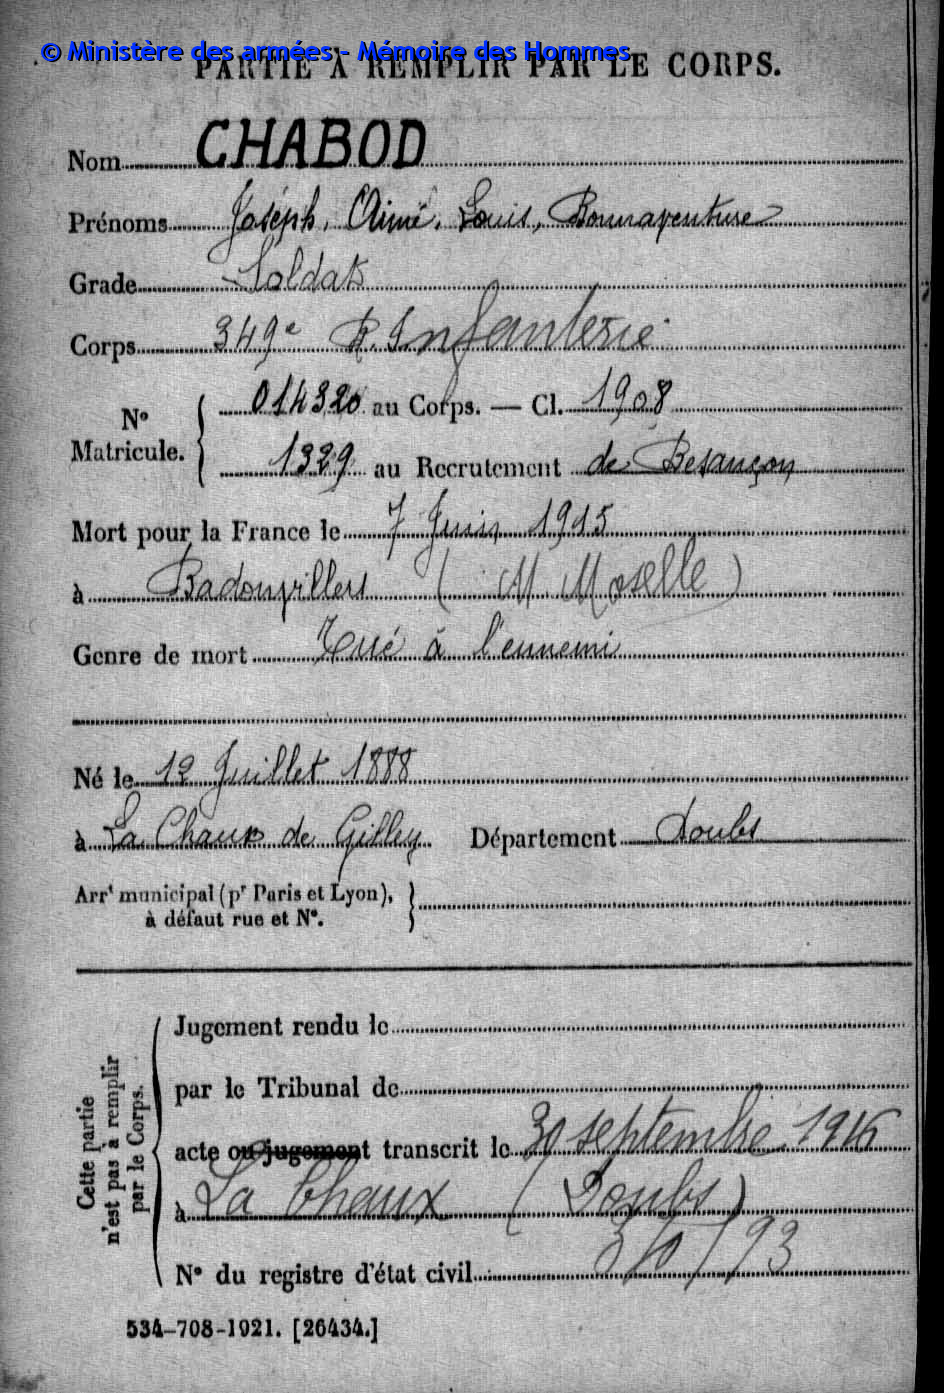 © Ministère des armées - Mémoire des Hommes
PARTIE À REMPLIR PAR LE CORPS.
Nom CHABOD
Prénoms Joseph, Aimé, Louis, Bonnaventure
Grade Soldat
Corps 349e R. Infanterie
No Matricule. { 014320 au Corps. — Cl. 1908
1329 au Recrutement de Besançon
Mort pour la France le 7 Juin 1915
à Badonvillers (M. Moselle)
Genre de mort Tué à l'ennemi
Né le 12 Juillet 1888
à La Chaux de Gilley Département Doubs
Arrt municipal (pr Paris et Lyon),
à défaut rue et No.
Cette partie
n'est pas à remplir
par le Corps.
Jugement rendu le
par le Tribunal de
acte ou jugement transcrit le 30 septembre 1916
à La Chaux (Doubs)
No du registre d'état civil
534-708-1921. [26434.]